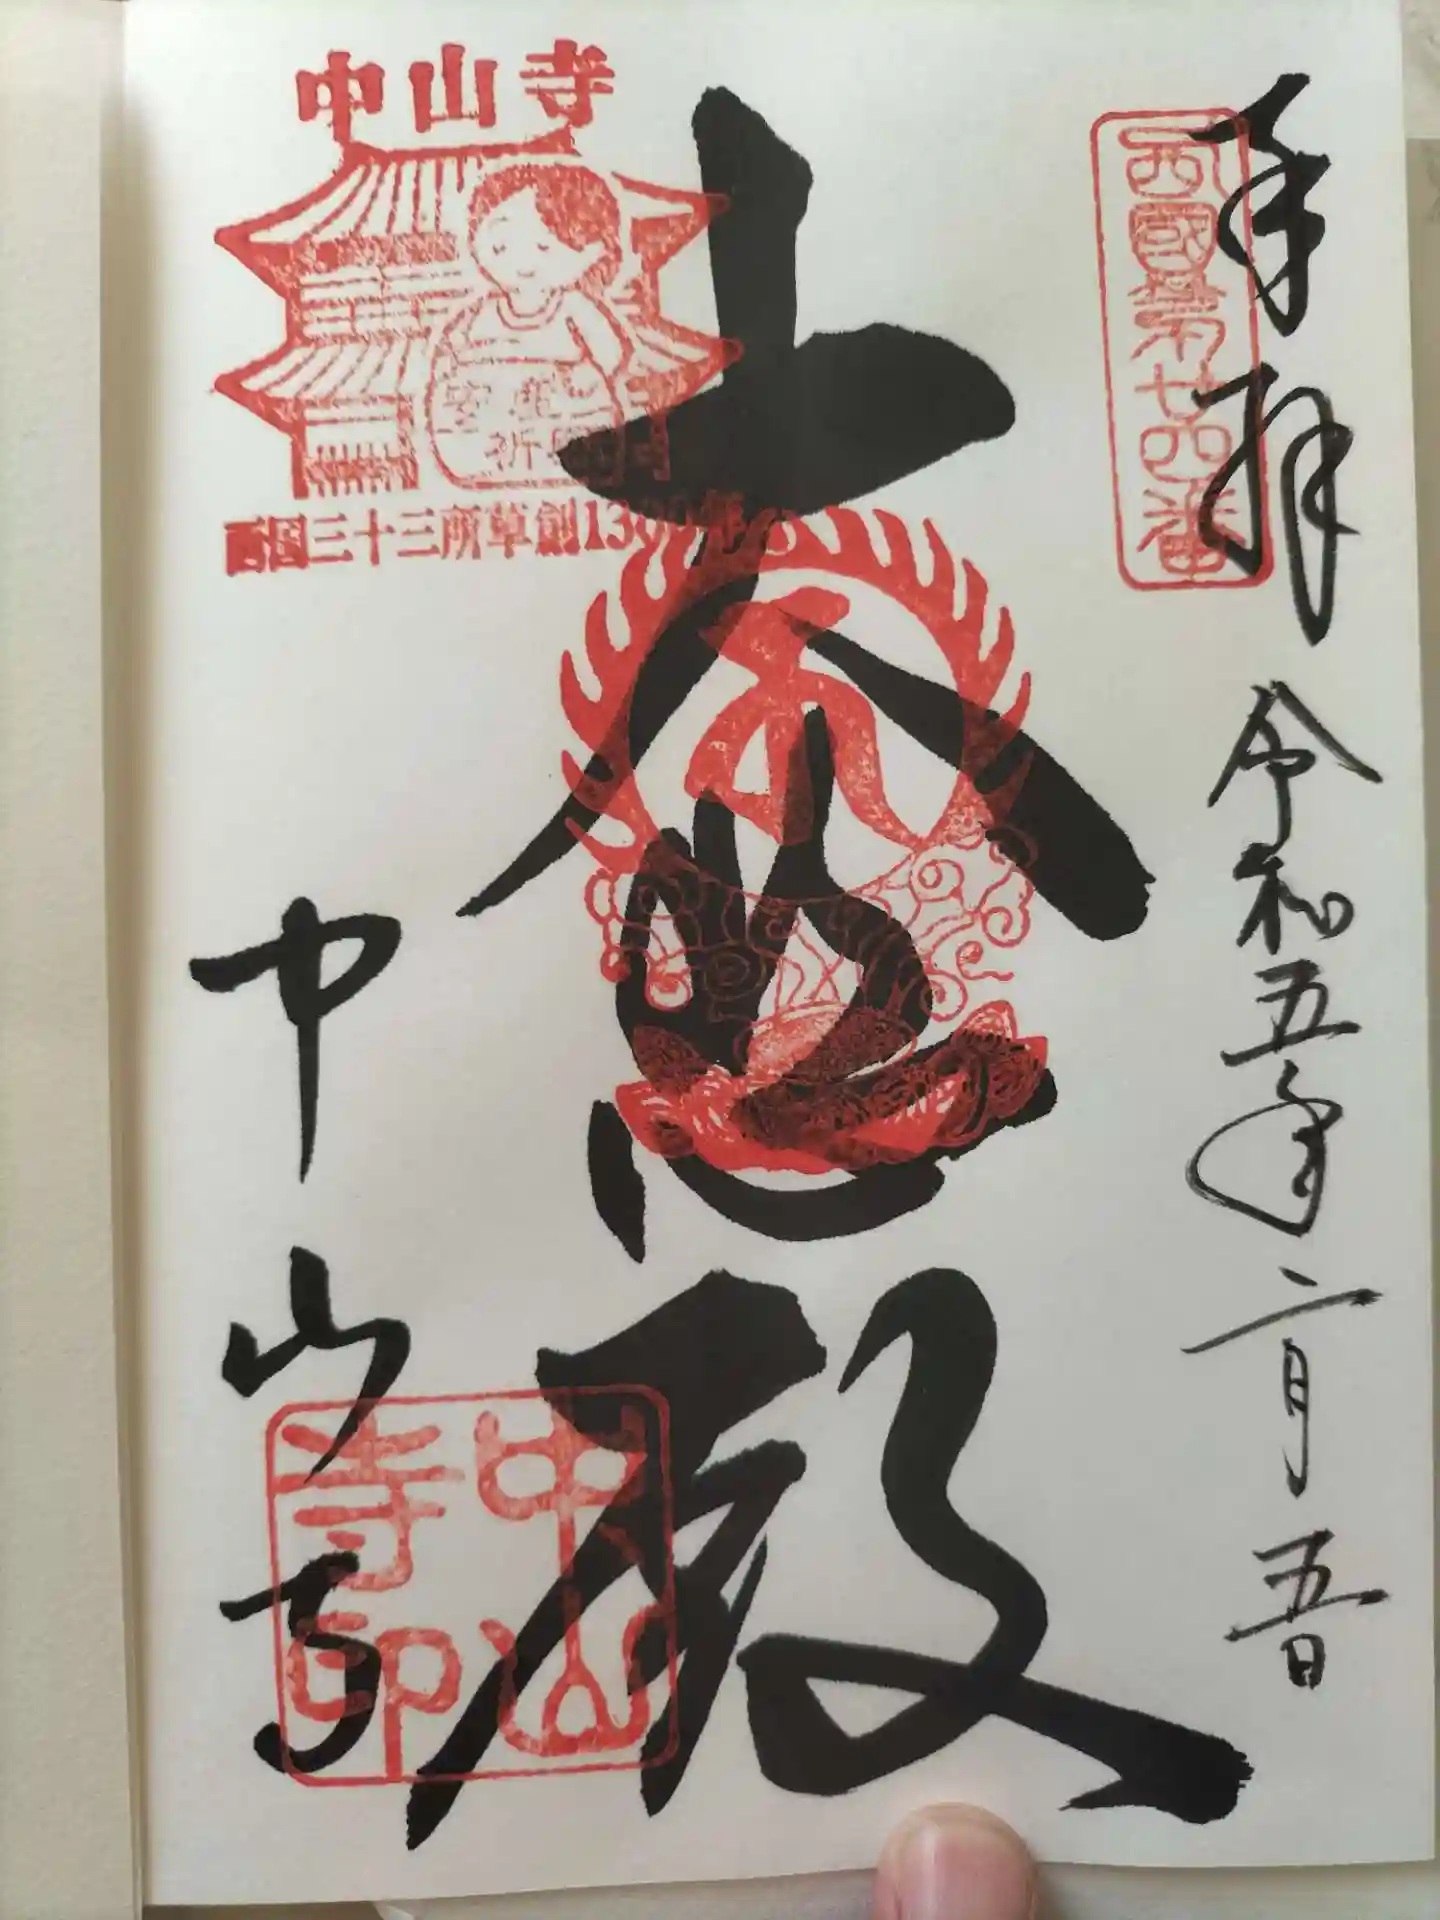 奉拝
令和五年二月五日
西國第廿四番
大悲殿
中山寺
安産
祈願
西国三十三所草創1300年
中山寺
中山寺印